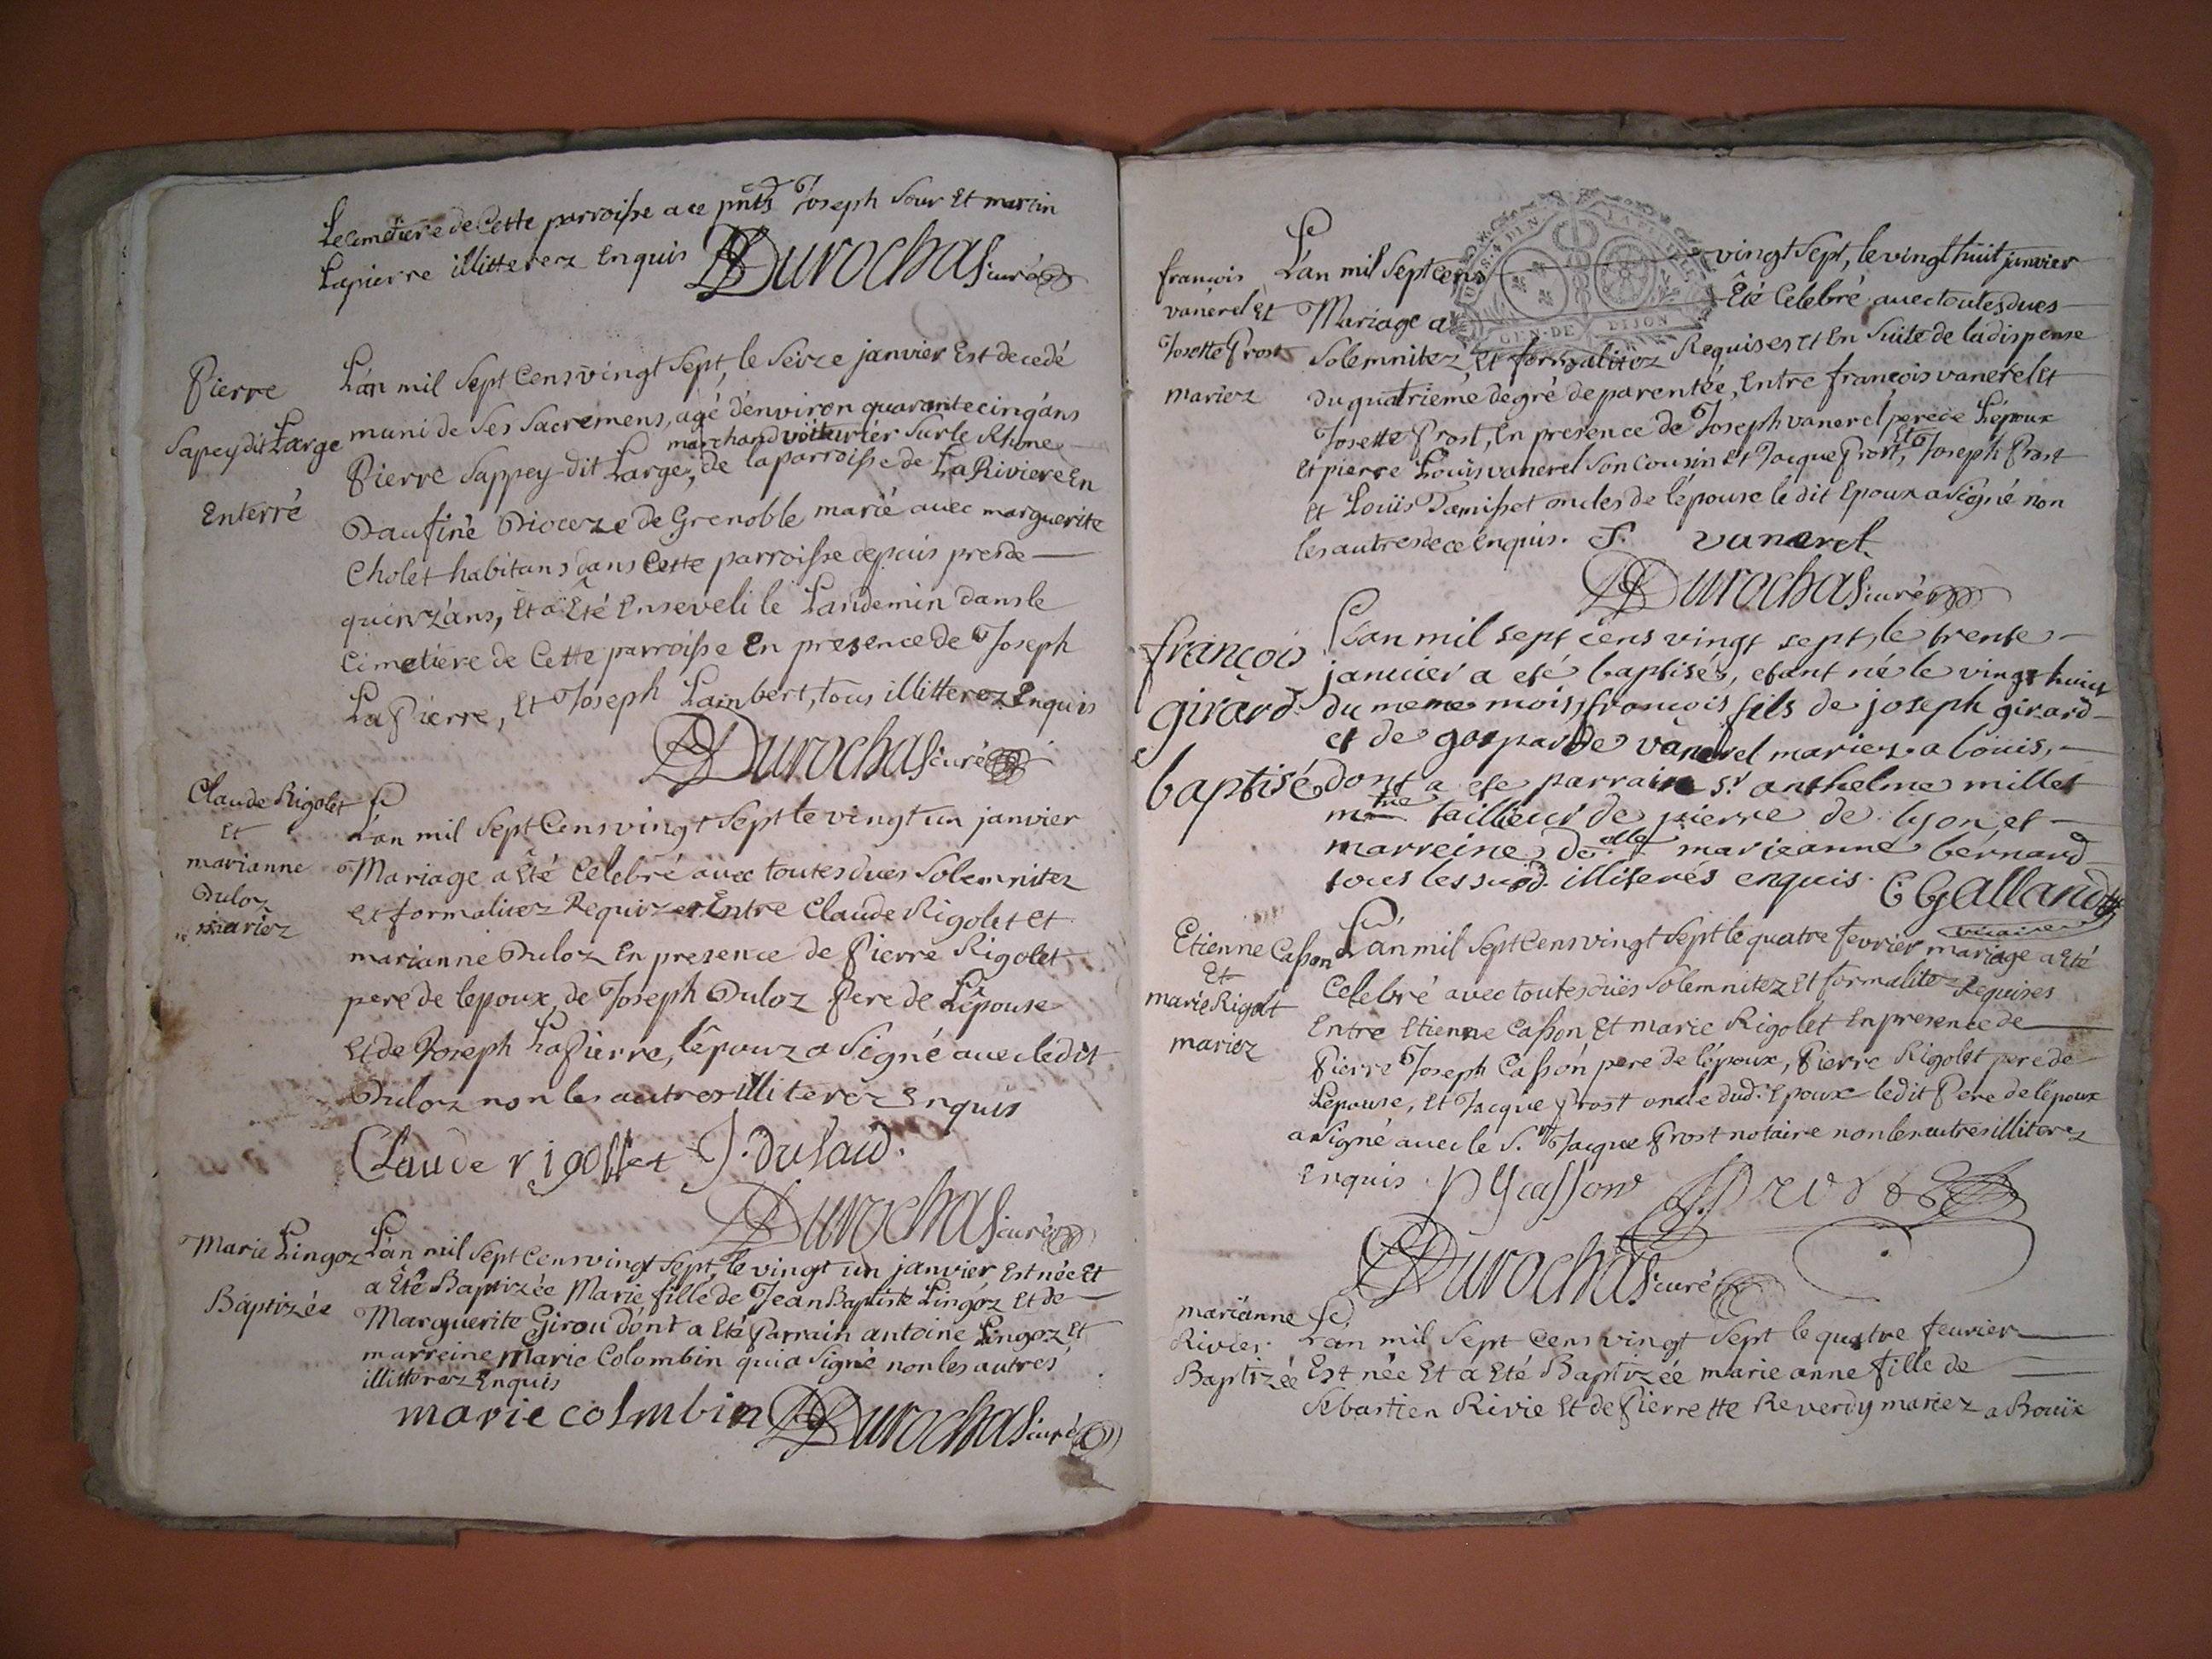 Le cimetiere de Cette parroisse a ce pnts Joseph Sour Et martin
Lapierre illitterez Enquis Durochas curé
Pierre
Sapey dit Large
Enterré
L'an mil Sept Cens vingt Sept, le Seize janvier Est decedé
muni de Ses Sacremens, agé d'environ quarante cinq ans
marchand voiturier Sur le Rhône
Pierre Sappey dit Large, de la parroisse de La Riviere En
Daufiné Dioceze de Grenoble marié avec marguerite
Cholet habitans dans Cette parroisse depuis pres de
quinz'ans, Et a Eté Enseveli le Landemin dans le
Cimetiere de Cette parroisse En presence de Joseph
La Pierre, Et Joseph Lambert, tous illitterez Enquis
Durochas curé
Claude Rigolet
Et
marianne
Duloz
mariez
L'an mil Sept Cens vingt Sept le vingt un janvier
Mariage a Eté Celebré avec toutes dues Solemnitez
Et formalitez Requizes Entre Claude Rigolet Et
marianne Duloz En presence de Pierre Rigolet
pere de lepoux, de Joseph Duloz Pere de L'épouse
Et de Joseph La Pierre, l'époux a Signé avec le dit
Duloz non les autres illiterez Enquis
Claude rigollet J. dulaud.
Durochas curé
Marie Lingoz
Baptizée
L'an mil Sept Cens vingt Sept, le vingt un janvier Est née Et
a Eté Baptizée Marie fille de Jean Baptiste Lingoz Et de
Marguerite Girou dont a Eté Parrain antoine Lingoz Et
marreine Marie Colombin qui a Signé non les autres
illitterez Enquis
marie colmbin Durochas curé
GEN. DE DIJON
francois
vanerel Et
Josette Prost
mariez
L'an mil Sept cens vingt Sept, le vingt huit janvier
Mariage a Eté Celebré avec toutes dues
Solemnitez, Et formalitez Requises Et En Suite de la dispense
du quatriéme degré de parentée, Entre françois vanerel Et
Josette Prost, En presence de Joseph vanerel pere de L'époux
Et pierre Louis vanerel Son Cousin Et Jacque Prost, Et Joseph Prost
Et Louis Tamisset oncles de l'épouse le dit Epoux a Signé non
les autres de ce Enquis. f. vanerel
Durochas curé
françois
girard
baptisé
L'an mil sept cens vingt sept, le trente
januier a eté baptisés, etant né le vingt huict
du meme mois, françois fils de joseph girard
et de gasparde vanerel mariez a Couis,
dont a ete parrain Sr. anthelme millet
mtre tailleur de pierre de lyon, et
marreine delle marieanne bernard
tous les susd. illiterés enquis. C Galland
vicaire
Etienne Casson
Et
marie Rigolt
mariez
L'an mil Sept Cens vingt Sept le quatre fevrier mariage a Eté
Celebré avec toutes dües Solemnitez Et formalitez Requises
Entre Etienne Casson Et marie Rigolet En presence de
Pierre Joseph Casson pere de l'époux, Pierre Rigolet pere de
Lepouse, Et Jacque Prost oncle dud. Epoux le dit Pere de lepoux
a Signé avec le S.r Jacque Prost notaire non les autres illiterez
Enquis PJ casson Prost
Durochas curé
marianne
Rivier
Baptizée
L'an mil Sept Cens vingt Sept le quatre feuvrier
Est née Et a Eté Baptizée marie anne fille de
Sebastien Rivie Et de Pierrette Reverdy mariez a Rouix